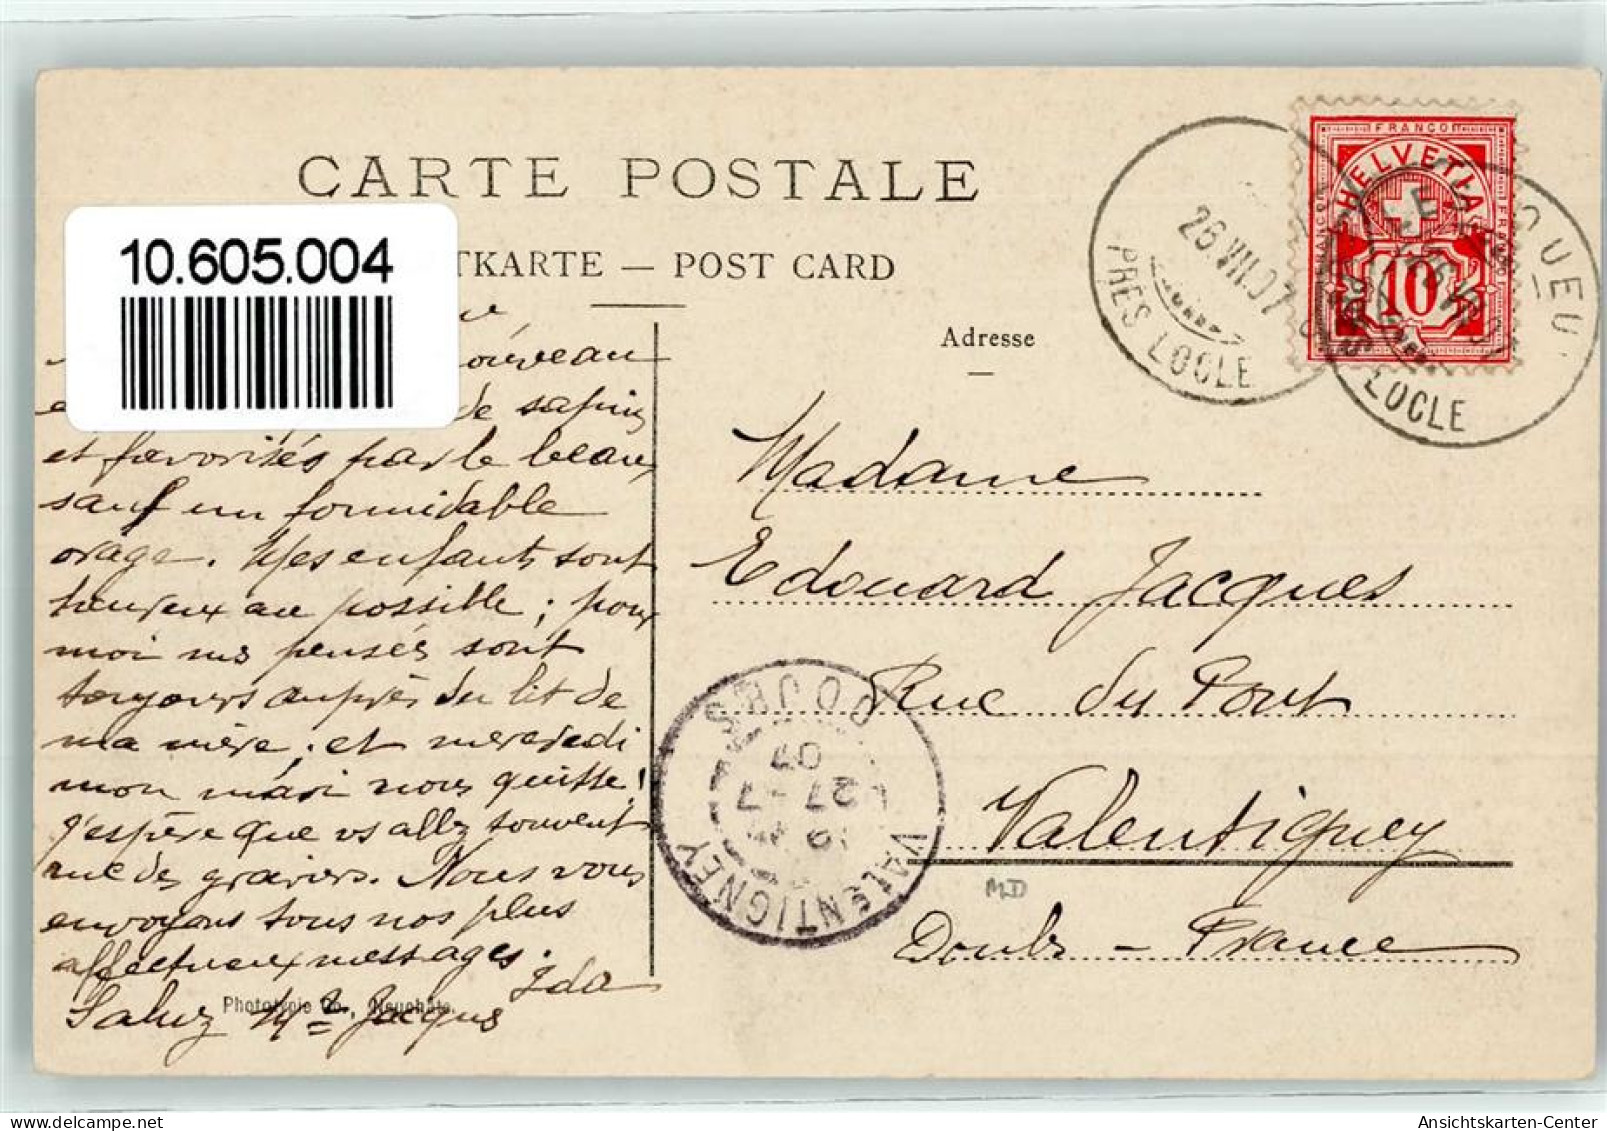 CARTE POSTALE
10.605.004
TKARTE — POST CARD
Adresse
FRANCO
HELVETIA
10
26.VII.07
PRES LOCLE
QUEU
LOCLE
de sapins
et favorisés par le beau,
sauf un formidable
orage. Mes enfants sont
heureux au possible; pour
moi mes pensés sont
toujours auprès du lit de
ma mère, et mercredi
mon mari nous quitte!
J'espère que vs allez souvent
rue des graviers. Nous vous
envoyons tous nos plus
affectueux messages.
Ida
Saluez Mr Jacques
Phototypie Co., Neuchâtel
Madame
Edouard Jacques
Rue du Pont
Valentigney
Doubs – France
VALENTIGNEY
DOUBS
27 - 7
07
MD
Ansichtskarten-Center